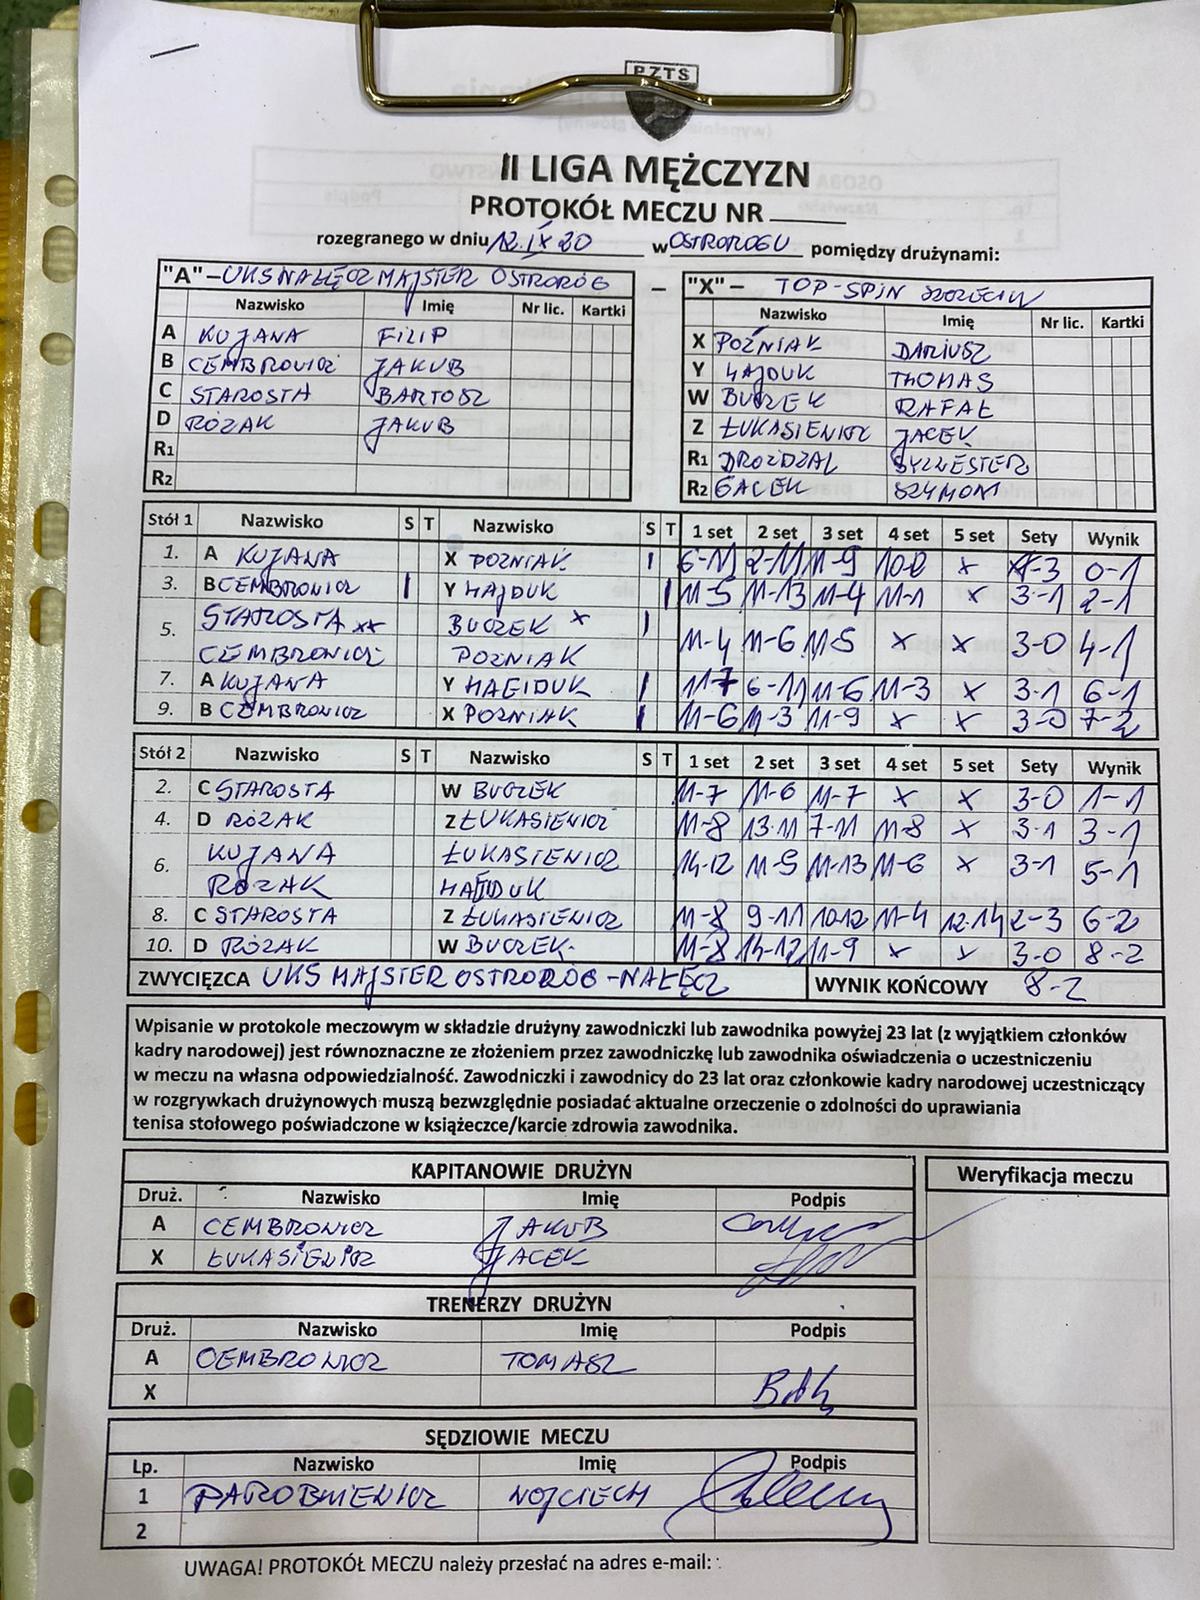 PZTS
II LIGA MĘŻCZYZN
PROTOKÓŁ MECZU NR
rozegranego w dniu 12.IX 20 w OSTROROGU pomiędzy drużynami:
"A" – UKS NAŁĘCZ MAJSTER OSTRORÓG – "X" – TOP-SPIN SZCZECIN
Nazwisko Imię Nr lic. Kartki Nazwisko Imię Nr lic. Kartki
A KUJANA FILIP X POŹNIAK DARIUSZ
B CEMBROWICZ JAKUB Y HAJDUK THOMAS
C STAROSTA BARTOSZ W BUCZEK RAFAŁ
D RÓZAK JAKUB Z ŁUKASIEWICZ JACEK
R1 R1 DROZDZAL SYLWESTER
R2 R2 GACEK SZYMON
Stół 1 Nazwisko S T Nazwisko S T 1 set 2 set 3 set 4 set 5 set Sety Wynik
1. A KUJANA X POZNIAK 6-11 2-11 11-9 x 1-3 0-1
3. B CEMBROWICZ Y HAJDUK 11-5 11-13 11-4 11-1 x 3-1 2-1
5. STAROSTA xx BUCZEK x
CEMBROWICZ POZNIAK 11-4 11-6 11-5 x x 3-0 4-1
7. A KUJANA Y HAGIDUK 11-7 6-11 11-6 11-3 x 3-1 6-1
9. B CEMBROWICZ X POZNIAK 11-6 11-3 11-9 x x 3-0 7-2
Stół 2 Nazwisko S T Nazwisko S T 1 set 2 set 3 set 4 set 5 set Sety Wynik
2. C STAROSTA W BUCZEK 11-7 11-6 11-7 x x 3-0 1-1
4. D RÓZAK Z ŁUKASIEWICZ 11-8 13-11 7-11 11-8 x 3-1 3-1
6. KUJANA ŁUKASIEWICZ 14-12 11-9 11-13 11-6 x 3-1 5-1
RÓZAK HAJDUK
8. C STAROSTA Z ŁUKASIEWICZ 11-8 9-11 10-12 11-4 12-14 2-3 6-2
10. D RÓZAK W BUCZEK 11-8 14-12 11-9 x x 3-0 8-2
ZWYCIĘZCA UKS MAJSTER OSTRORÓG-NAŁĘCZ WYNIK KOŃCOWY 8-2
Wpisanie w protokole meczowym w składzie drużyny zawodniczki lub zawodnika powyżej 23 lat (z wyjątkiem członków
kadry narodowej) jest równoznaczne ze złożeniem przez zawodniczkę lub zawodnika oświadczenia o uczestniczeniu
w meczu na własna odpowiedzialność. Zawodniczki i zawodnicy do 23 lat oraz członkowie kadry narodowej uczestniczący
w rozgrywkach drużynowych muszą bezwzględnie posiadać aktualne orzeczenie o zdolności do uprawiania
tenisa stołowego poświadczone w książeczce/karcie zdrowia zawodnika.
KAPITANOWIE DRUŻYN Weryfikacja meczu
Druż. Nazwisko Imię Podpis
A CEMBROWICZ JAKUB
X ŁUKASIEWICZ JACEK
TRENERZY DRUŻYN
Druż. Nazwisko Imię Podpis
A CEMBROWICZ TOMASZ
X
SĘDZIOWIE MECZU
Lp. Nazwisko Imię Podpis
1 PAROBKIEWICZ WOJCIECH
2
UWAGA! PROTOKÓŁ MECZU należy przesłać na adres e-mail: